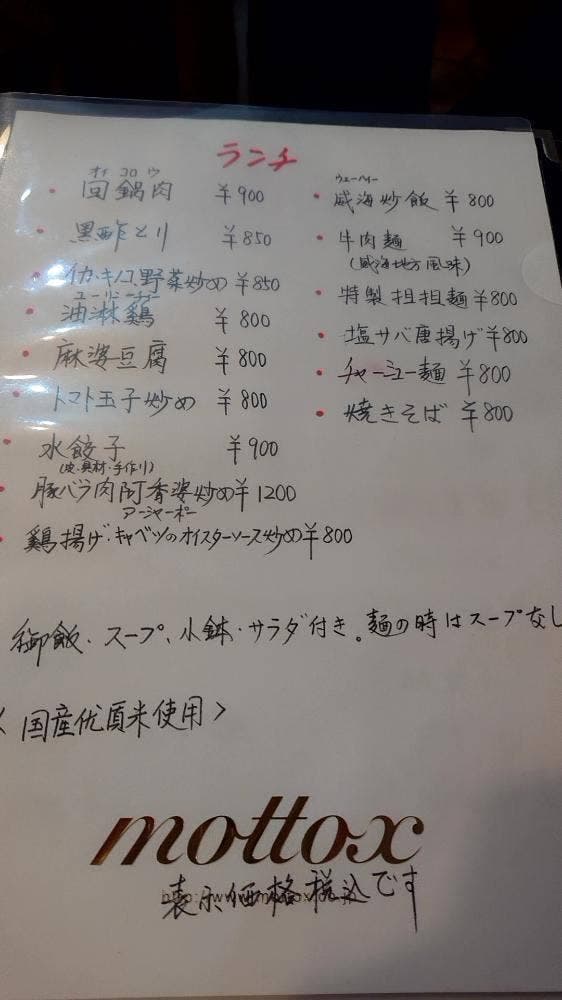 ランチ
ホイコロウ
・回鍋肉 ¥900
・黒酢とり ¥850
・イカ・キノコ、野菜炒め ¥850
ユーリーチー
・油淋鶏 ¥800
・麻婆豆腐 ¥800
・トマト玉子炒め ¥800
・水餃子 ¥900
(皮・具材・手作り)
・豚バラ肉阿香婆炒め¥1200
アーシャーポー
・鶏揚げ・キャベツのオイスターソース炒め¥800
ウェーハイ
・威海炒飯 ¥800
・牛肉麺 ¥900
(威海地方風味)
・特製担担麺¥800
・塩サバ唐揚げ¥800
・チャーシュー麺 ¥800
・焼きそば ¥800
御飯・スープ、小鉢・サラダ付き。麺の時はスープなし
<国産优質米使用>
mottox
表示価格税込です